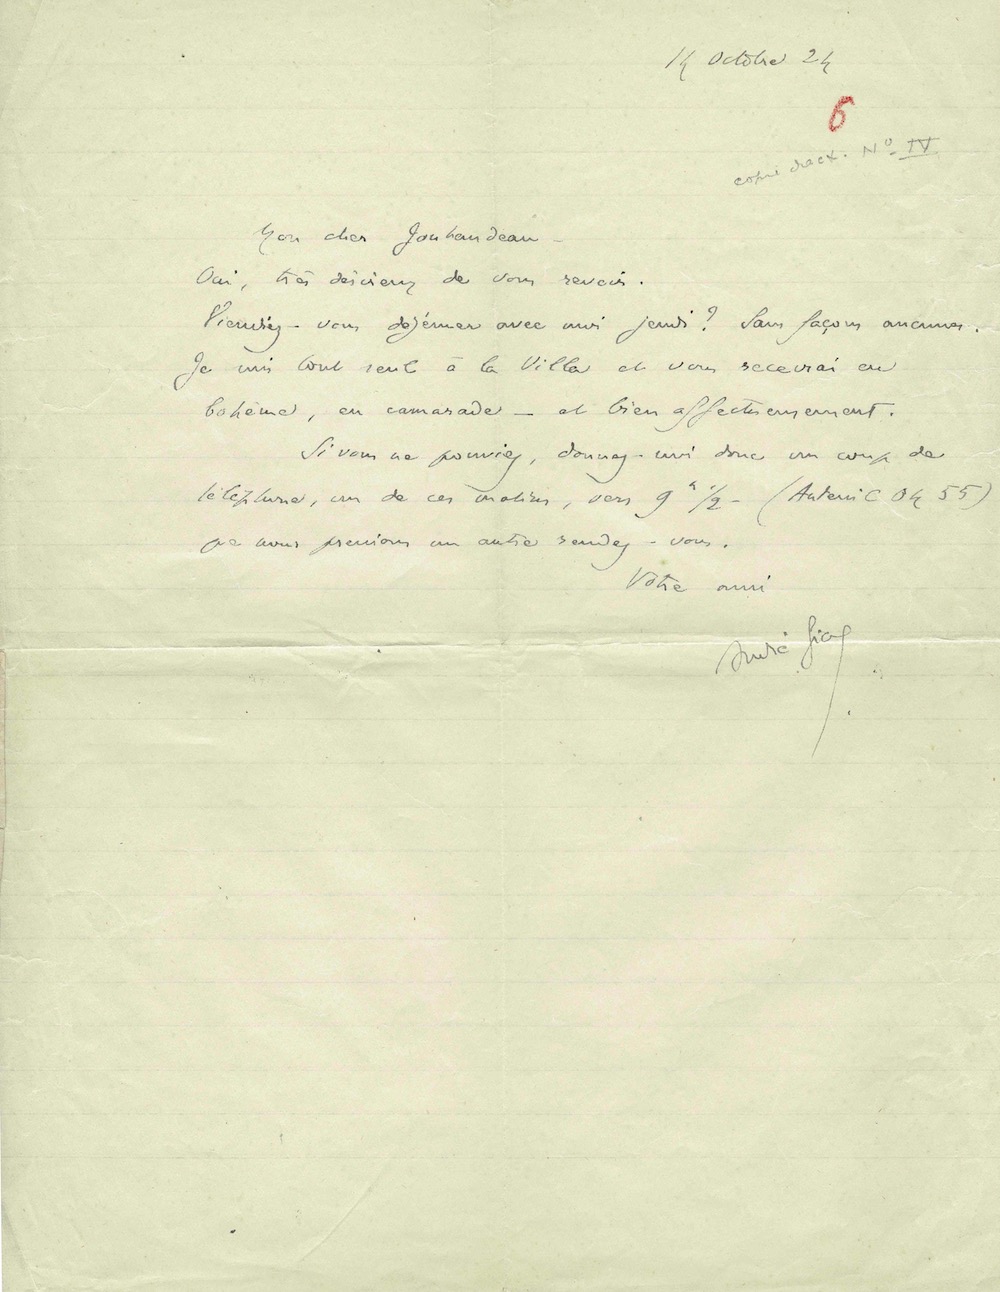 14 Octobre 24
6
copié dact. N° IV
Mon cher Jouhandeau –
Oui, très désireux de vous revoir.
Viendriez-vous déjeuner avec moi jeudi ? Sans façons aucunes.
Je suis tout seul à la Villa et vous recevrai en
bohème, en camarade – et bien affectueusement.
Si vous ne pouviez, donnez-moi donc un coup de
téléphone, un de ces matins, vers 9 h 1/2 – (Auteuil 04 55)
que nous prenions un autre rendez-vous.
Votre ami
André Gide